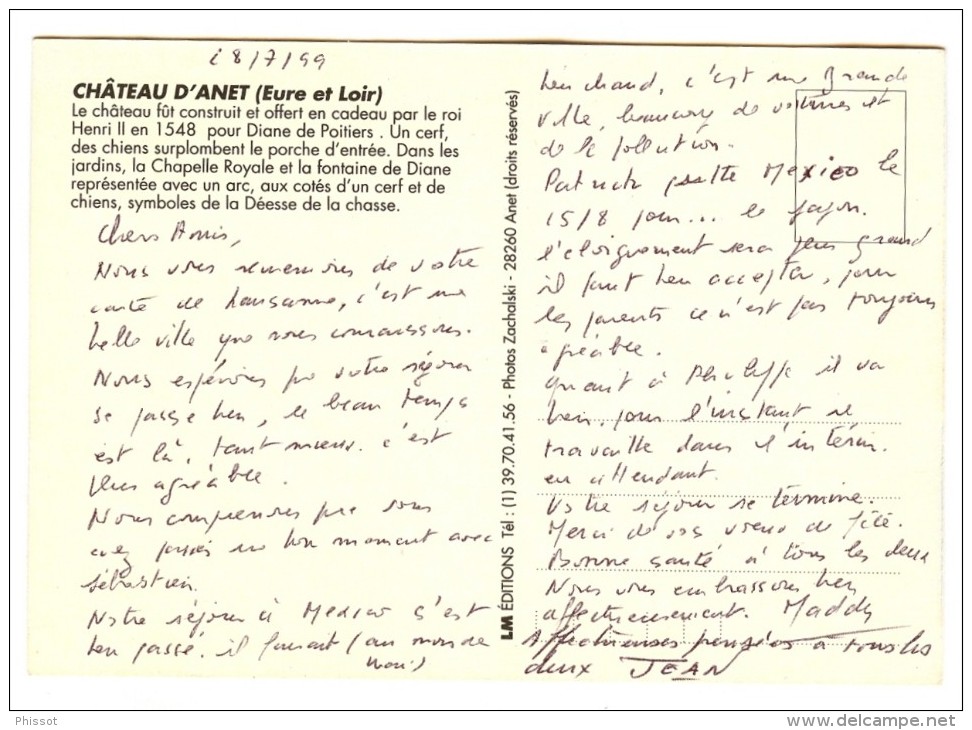 18/7/99
CHÂTEAU D'ANET (Eure et Loir)
Le château fût construit et offert en cadeau par le roi
Henri II en 1548 pour Diane de Poitiers . Un cerf,
des chiens surplombent le porche d'entrée. Dans les
jardins, la Chapelle Royale et la fontaine de Diane
représentée avec un arc, aux cotés d'un cerf et de
chiens, symboles de la Déesse de la chasse.
Chers Amis,
Nous vous remercions de votre
carte de Lausanne, c'est une
belle ville que nous connaissons.
Nous espérons que votre séjour
se passe bien, le beau temps
est là, tant mieux. c'est
plus agréable.
Nous comprenons que vous
avez passés un bon moment avec
Sébastien.
Notre séjour à Mexico s'est
bien passé. il faisait (au mois de
LM ÉDITIONS Tél : (1) 39.70.41.56 - Photos Zachalski - 28260 Anet (droits réservés)
bien chaud, c'est une Grande
ville, beaucoup de voitures et
de la pollution.
Patrick quitte Mexico le
15/8 pour... le Japon.
l'éloignement sera plus grand
il faut bien accepter, pour
les parents ce n'est pas toujours
agréable.
Quant à Philippe il va
bien, pour l'instant il
travaille dans l'intérim.
en attendant.
Votre séjour se termine.
Merci de vos voeux de fête.
Bonne santé à tous les deux
Nous vous embrassons bien
affectueusement. Maddy
Affectueuses pensées à tous les
deux JEAN
Phissot
www.delcampe.net